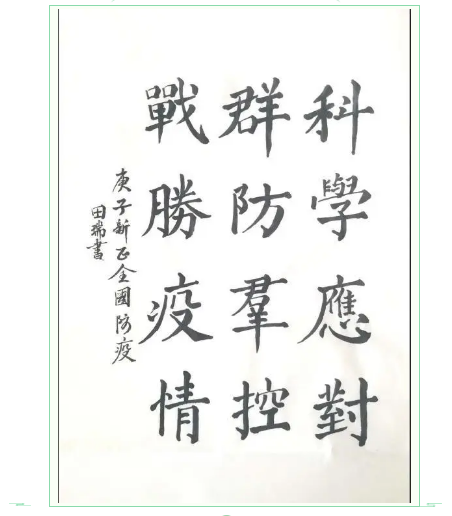 科學應對
群防羣控
戰勝疫情
庚子新正全國防疫
田瑞書